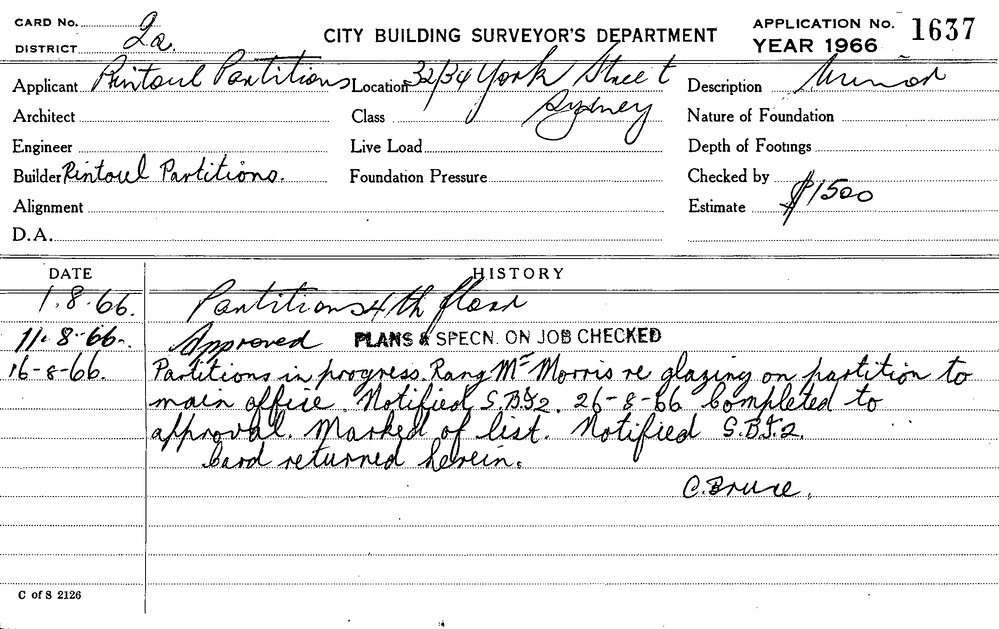 CARD No.
DISTRICT 2a.
CITY BUILDING SURVEYOR'S DEPARTMENT
APPLICATION No. 1637
YEAR 1966
Applicant Rintoul Partitions Location 32/34 York Street Description Minor
Architect Class Sydney Nature of Foundation
Engineer Live Load Depth of Footings
Builder Rintoul Partitions. Foundation Pressure Checked by
Alignment Estimate $1500
D.A.
DATE HISTORY
1.8.66. Partitions 4th floor
11.8.66. Approved PLANS & SPECN. ON JOB CHECKED
16-8-66. Partitions in progress. Rang Mr Morris re glazing on partition to
main office Notified S.B.I2. 26-8-66 Completed to
approval. Marked of list. Notified S.B.I.2.
Card returned herein.
C. Bruce.
C of S 2126